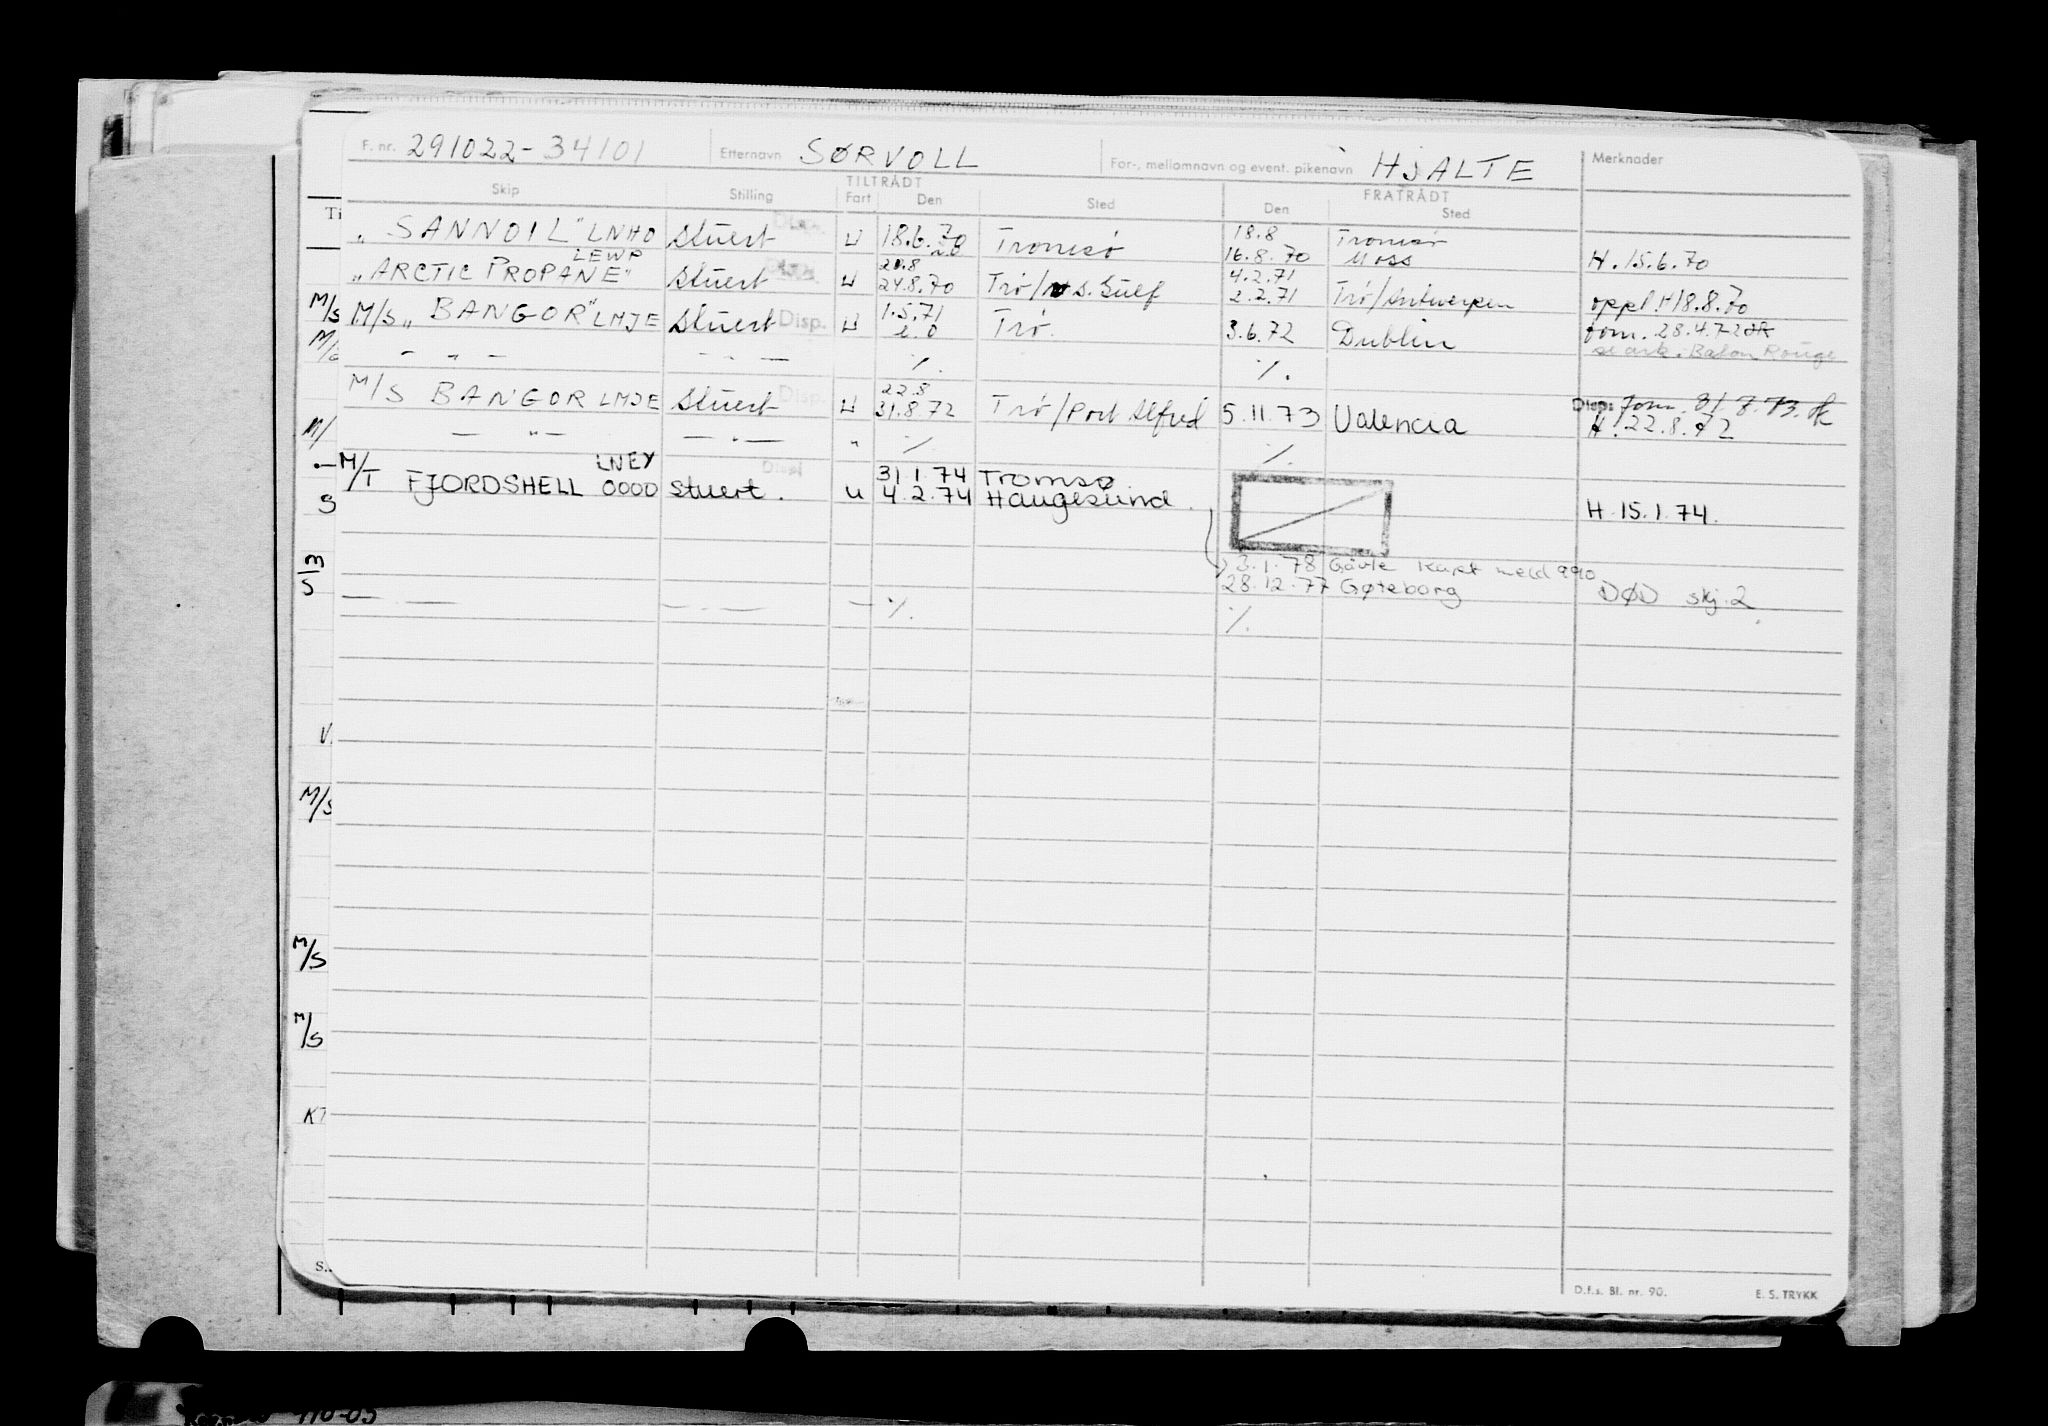 F. nr. 291022-34101 Etternavn SØRVOLL For-, mellomnavn og event. pikenavn HJALTE Merknader
Skip Stilling TILTRÅDT Fart Den Sted FRATRÅDT Den Sted
18.8 Tromsø
„SANNOIL" LNHO Stuert Disp. U 18.6.70 Tromsø 16.8.70 Moss H. 15.6.70
LEWP 21.8 4.2.71
„ARCTIC PROPANE" Stuert U 24.8.70 Trø/ S. Gulf 2.2.71 Trø/Antwerpen oppl. H 18.8.70
M/S M/S „BANGOR" LMJE Stuert Disp. U 1.5.71 Trø. 3.6.72 Dublin fom. 28.4.72
Baton Rouge
— „ — — „ — ./. ./.
22.8
M/S BANGOR LMJE Stuert Disp. U 31.8.72 Trø/Port Alfred 5.11.73 Valencia Disp. fom. 31.7.73.
H. 22.8.72
M/ — „ — — „ — „ ./. ./.
LNEY 31.1.74 Tromsø
M/T FJORDSHELL 0000 Stuert. U 4.2.74 Haugesund. H. 15.1.74.
S
3.1.78 Gävle Kapt meld 990
M/S 28.12.77 Gøteborg DØD skj. 2
— „ — — „ — — ./. ./.
M/S
M/S
M/S
S.
D.f.s. Bl. nr. 90. E. S. TRYKK